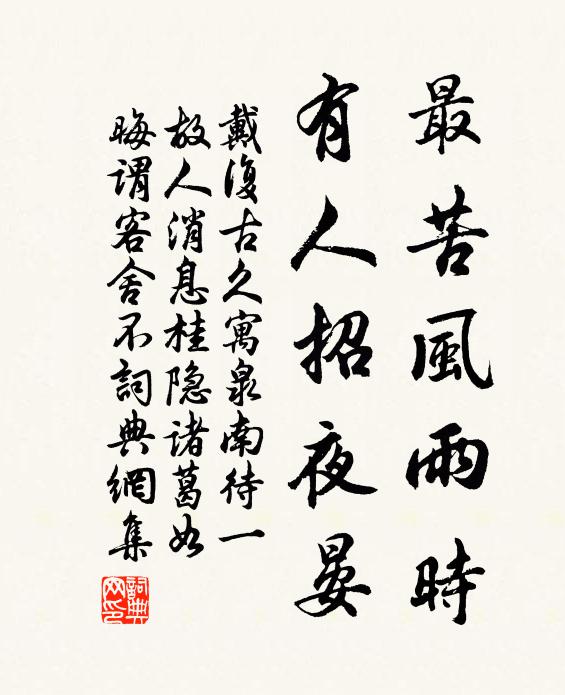 最苦風雨時
有人招夜晏
戴復古久寓泉南待一
故人消息桂隐諸葛如
晦謂客舍不詞典網集
詞典網印